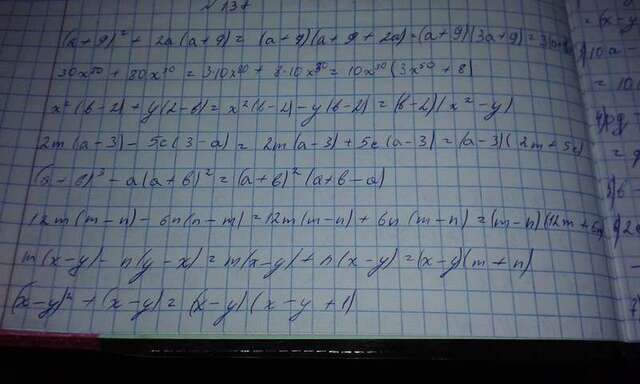 № 137
(a+9)² + 2a(a+9) = (a+9)(a+9+2a) = (a+9)(3a+9) =
30x⁸⁰ + 80x³⁰ = 3·10x⁸⁰ + 8·10x³⁰ = 10x³⁰(3x⁵⁰ + 8)
x²(b-2) + y(2-b) = x²(b-2) - y(b-2) = (b-2)(x² - y)
2m(a-3) - 5c(3-a) = 2m(a-3) + 5c(a-3) = (a-3)(2m + 5c)
(a-b)³ - a(a+b)² = (a+b)²(a+b-a)
12m(m-n) - 6n(n-m) = 12m(m-n) + 6n(m-n) = (m-n)(12m + 6n)
m(x-y) - n(y-x) = m(x-y) + n(x-y) = (x-y)(m+n)
(x-y)² + (x-y) = (x-y)(x-y+1)